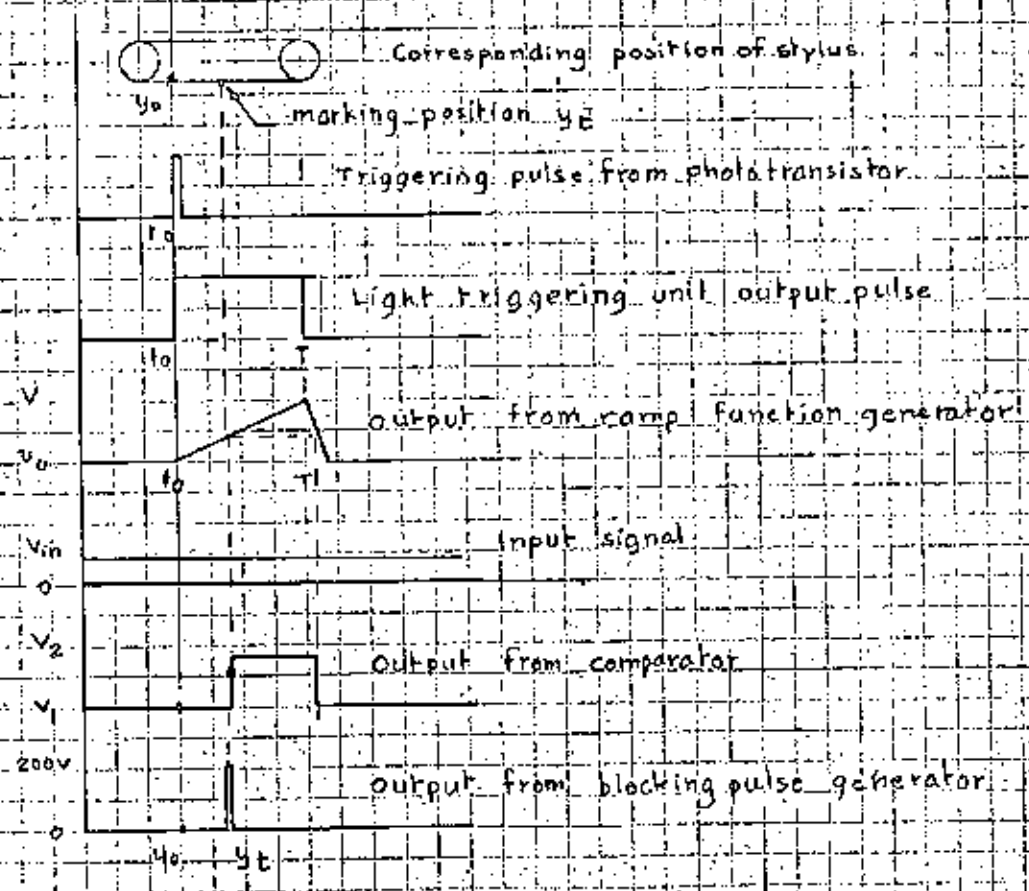 Corresponding position of stylus
y₀
marking position yt
Triggering pulse from phototransistor
t₀
Light triggering unit output pulse
t₀ T
V
output from ramp function generator
v₀
t₀ T
Vin
Input signal
0
V₂
output from comparator
V₁
200V
output from blocking pulse generator
0
y₀ yt